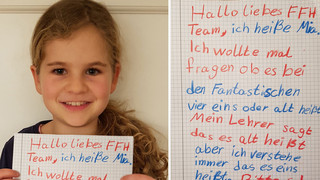 Hallo liebes FFH
Team, ich heiße Mia.
Ich wollte mal
Hallo liebes FFH
Team, ich heiße Mia.
Ich wollte mal
fragen ob es bei
den Fantastischen
vier eins oder alt heißt
Mein Lehrer sagt
das es alt heißt
aber ich verstehe
immer das es eins
heißt.